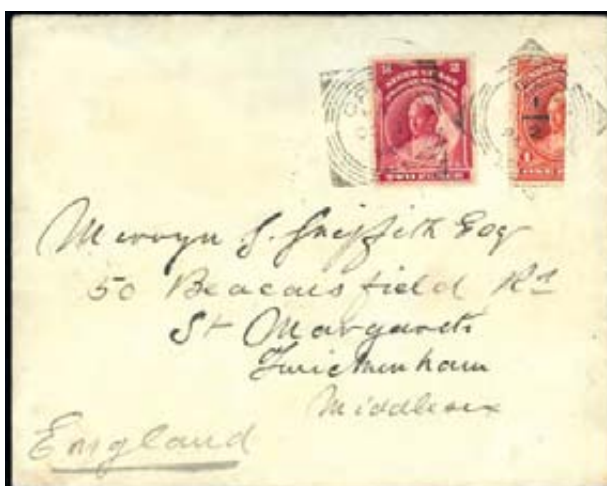 2 2
TWO PENCE
1
2
1
ONE
Mervyn G. Griffith Esq
50 Beaconsfield Rd
St Margarets
Twickenham
Middlesex
England